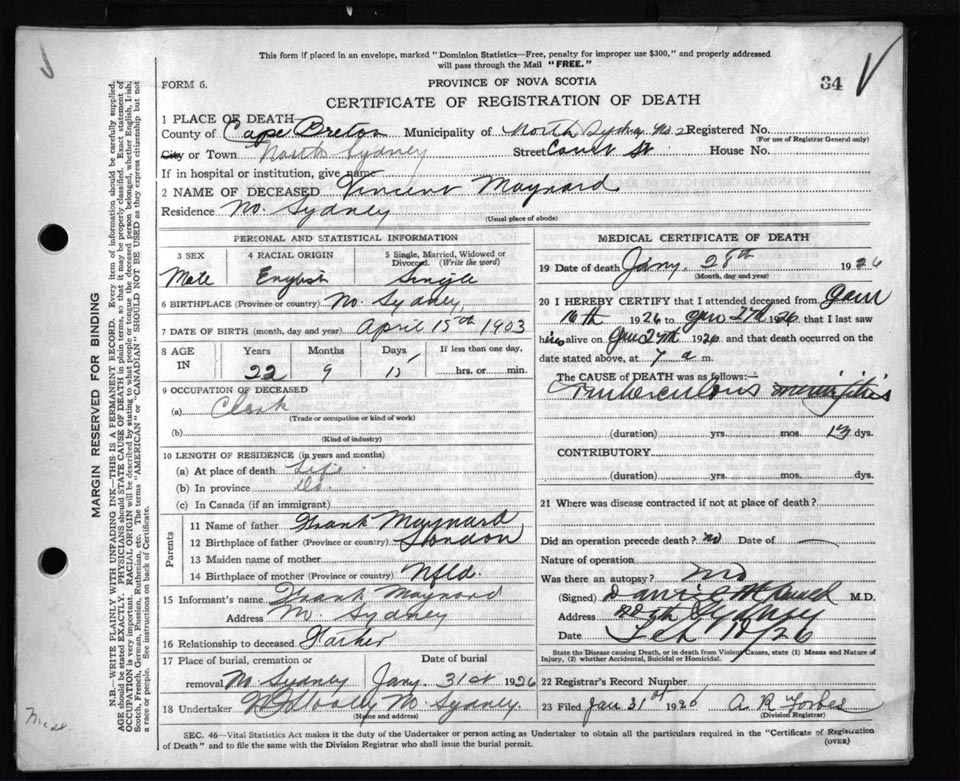 This form if placed in an envelope, marked "Dominion Statistics—Free, penalty for improper use $300," and properly addressed
will pass through the Mail "FREE."
FORM 6.
PROVINCE OF NOVA SCOTIA
34
CERTIFICATE OF REGISTRATION OF DEATH
1 PLACE OF DEATH
County of Cape Breton Municipality of North Sydney No. 2 Registered No.
(For use of Registrar General only)
City or Town North Sydney Street Court St House No.
If in hospital or institution, give name
2 NAME OF DECEASED Vincent Maynard
Residence No. Sydney
(Usual place of abode)
PERSONAL AND STATISTICAL INFORMATION
3 SEX 4 RACIAL ORIGIN 5 Single, Married, Widowed or
Divorced. (Write the word)
Male English Single
6 BIRTHPLACE (Province or country) No. Sydney
7 DATE OF BIRTH (month, day and year) April 15th 1903
8 AGE IN Years Months Days If less than one day,
22 9 hrs. or min.
9 OCCUPATION OF DECEASED
(a) Clerk
(Trade or occupation or kind of work)
(b)
(Kind of industry)
10 LENGTH OF RESIDENCE (in years and months)
(a) At place of death Life
(b) In province Do
(c) In Canada (if an immigrant)
Parents
11 Name of father Frank Maynard
12 Birthplace of father (Province or country) London
13 Maiden name of mother
14 Birthplace of mother (Province or country) Nfld.
15 Informant's name Frank Maynard
Address No. Sydney
16 Relationship to deceased Father
17 Place of burial, cremation or Date of burial
removal No Sydney Jany. 31st 1926
18 Undertaker No. Sydney.
(Name and address)
MEDICAL CERTIFICATE OF DEATH
19 Date of death Jany. 28th 1926
(Month, day and year)
20 I HEREBY CERTIFY that I attended deceased from Jan
16th 1926 to Jan 27th 1926 that I last saw
him alive on Jan 27th 1926 and that death occurred on the
date stated above, at 7 a m.
The CAUSE OF DEATH was as follows:—
Tuberculous meningitis
(duration) yrs. mos. 13 dys.
CONTRIBUTORY
(duration) yrs. mos. dys.
21 Where was disease contracted if not at place of death?
Did an operation precede death? no Date of —
Nature of operation
Was there an autopsy? no
(Signed) M.D.
Address Nth Sydney
Date Feb 1926
State the Disease causing Death, or in death from Violent Causes, state (1) Means and Nature of
Injury, (2) whether Accidental, Suicidal or Homicidal.
22 Registrar's Record Number
23 Filed Jan 31st 1926 A R Forbes
(Division Registrar)
SEC. 46—Vital Statistics Act makes it the duty of the Undertaker or person acting as Undertaker to obtain all the particulars required in the "Certificate of Registration
of Death" and to file the same with the Division Registrar who shall issue the burial permit.
(OVER)
MARGIN RESERVED FOR BINDING
N.B.—WRITE PLAINLY WITH UNFADING INK—THIS IS A PERMANENT RECORD. Every item of information should be carefully supplied.
AGE should be stated EXACTLY. PHYSICIANS should STATE CAUSE OF DEATH in plain terms, so that it may be properly classified. Exact statement of
OCCUPATION is very important. RACIAL ORIGIN will be described by stating to what people or tongue the deceased person belonged, whether English, Irish,
Scotch, French, German, Russian, Ruthenian, etc. The terms "AMERICAN" or "CANADIAN" SHOULD NOT BE USED as they express citizenship but not
a race or people. See instructions on back of Certificate.